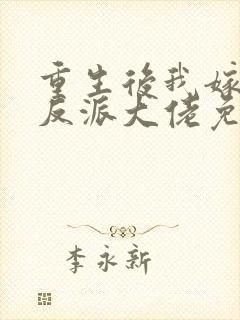 重生後我嫁
反派大佬免
李永新